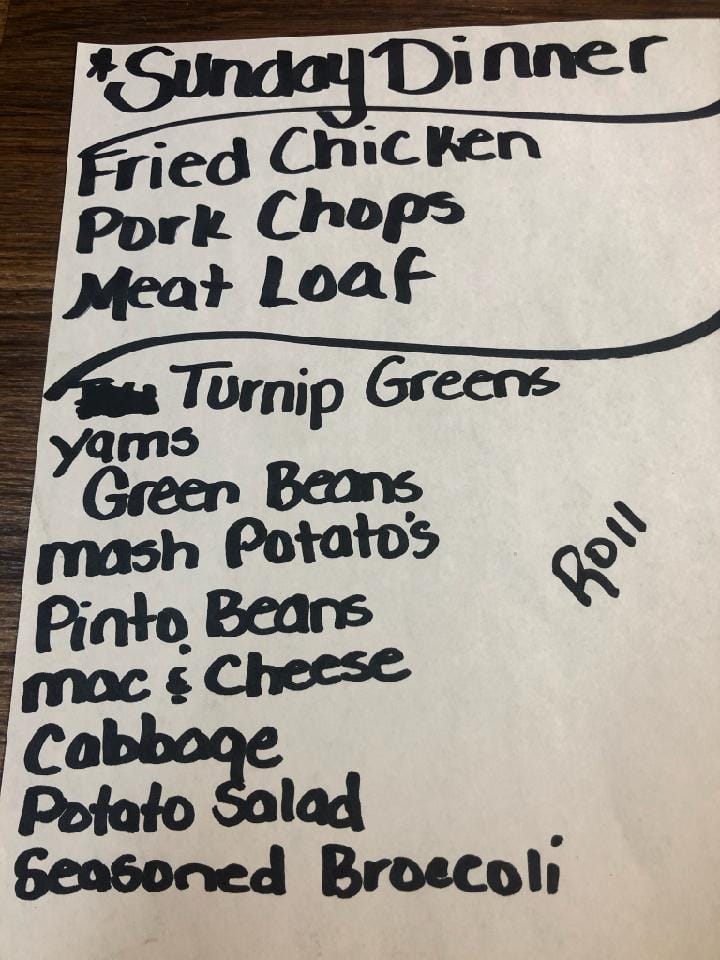 *Sunday Dinner
Fried Chicken
Pork Chops
Meat Loaf
Turnip Greens
yams
Green Beans
mash Potato's
Roll
Pinto Beans
mac & Cheese
Cabbage
Potato Salad
Seasoned Broccoli